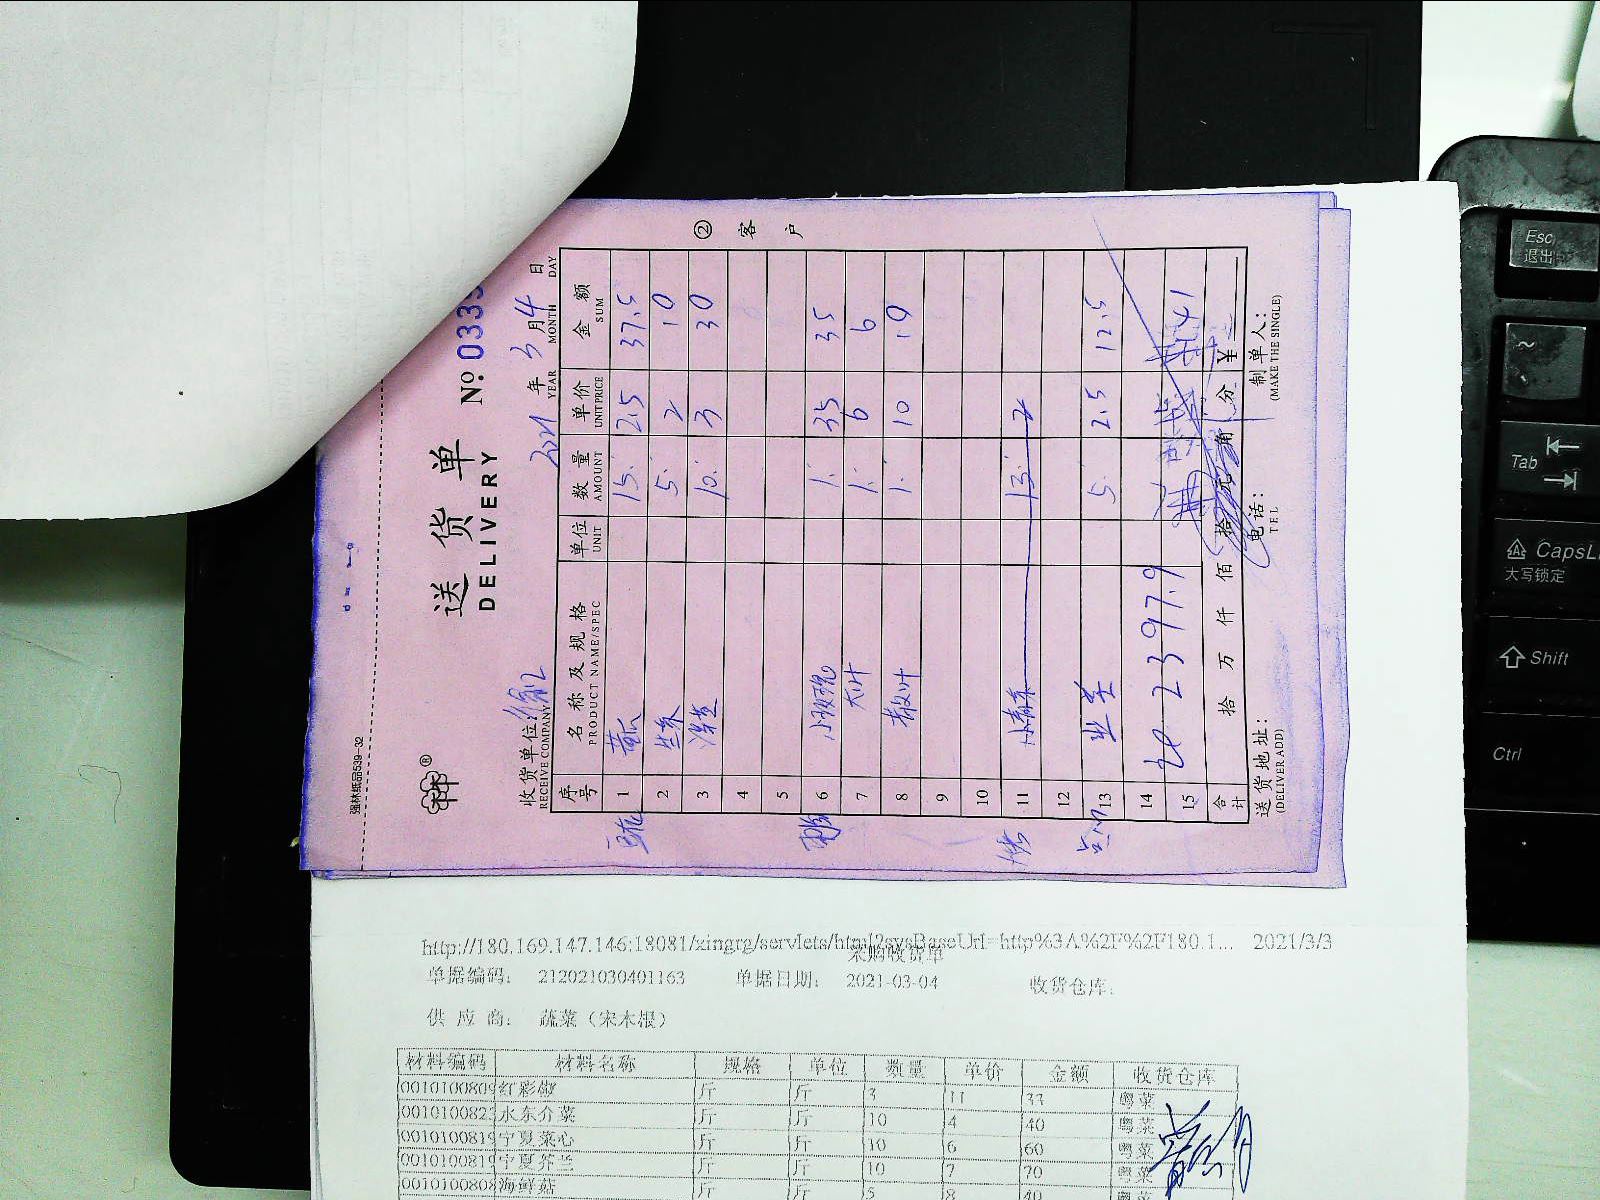 强林纸品539-32
送货单
DELIVERY
№ 0333
收货单位
RECEIVE COMPANY
2021 年 3 月 4 日
YEAR MONTH DAY
② 客户
序号 名称及规格 单位 数量 单价 金额
PRODUCT NAME/SPEC UNIT AMOUNT UNIT PRICE SUM
1 黄瓜 15. 2.5 37.5
2 5. 2 10
3 10. 3 30
4
5
6 1. 35 35
7 大叶 1. 6 6
8 1. 10 10
9
10
11 13. 2
12
13 5. 2.5 12.5
14
15 2397.9 141
合计 拾 万 仟 佰 拾 元 角 分 ¥
送货地址: 电话: 制单人:
(DELIVER ADD) TEL (MAKE THE SINGLE)
http://180.169.147.146:18081/xingrg/servlets/html?sysBaseUrl=http%3A%2F%2F180.1... 2021/3/3
采购收货单
单据编码: 212021030401163 单据日期: 2021-03-04 收货仓库:
供应商: 蔬菜（宋木根）
材料编码 材料名称 规格 单位 数量 单价 金额 收货仓库
0010100809 红彩椒 斤 斤 3 11 33 粤菜
001010082 水东介菜 斤 斤 10 4 40 粤菜
0010100819 宁夏菜心 斤 斤 10 6 60 粤菜
001010081 宁夏芥兰 斤 斤 10 7 70 粤菜
0010100808 海鲜菇 斤 斤 5 8 40 粤菜
Esc
退出
~
Tab
CapsL
大写锁定
Shift
Ctrl